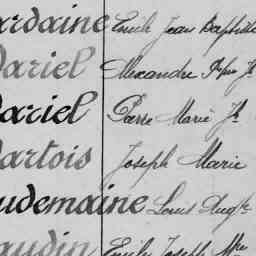 ardaine Emile Jean Baptiste
Dariel Alexandre
Dariel Pierre Marie Jh
Dartois Joseph Marie
udemaine Louis Augte
audin Emile Joseph Mie